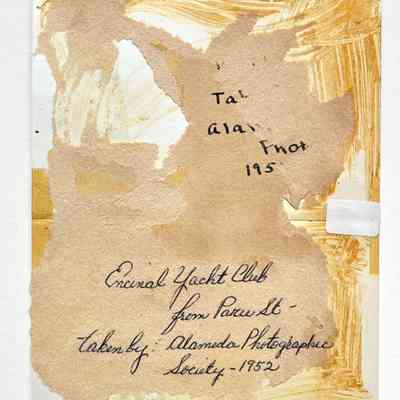 Ta
Ala
Phot
195
Encinal Yacht Club
from Paru St -
Taken by: Alameda Photographic
Society - 1952